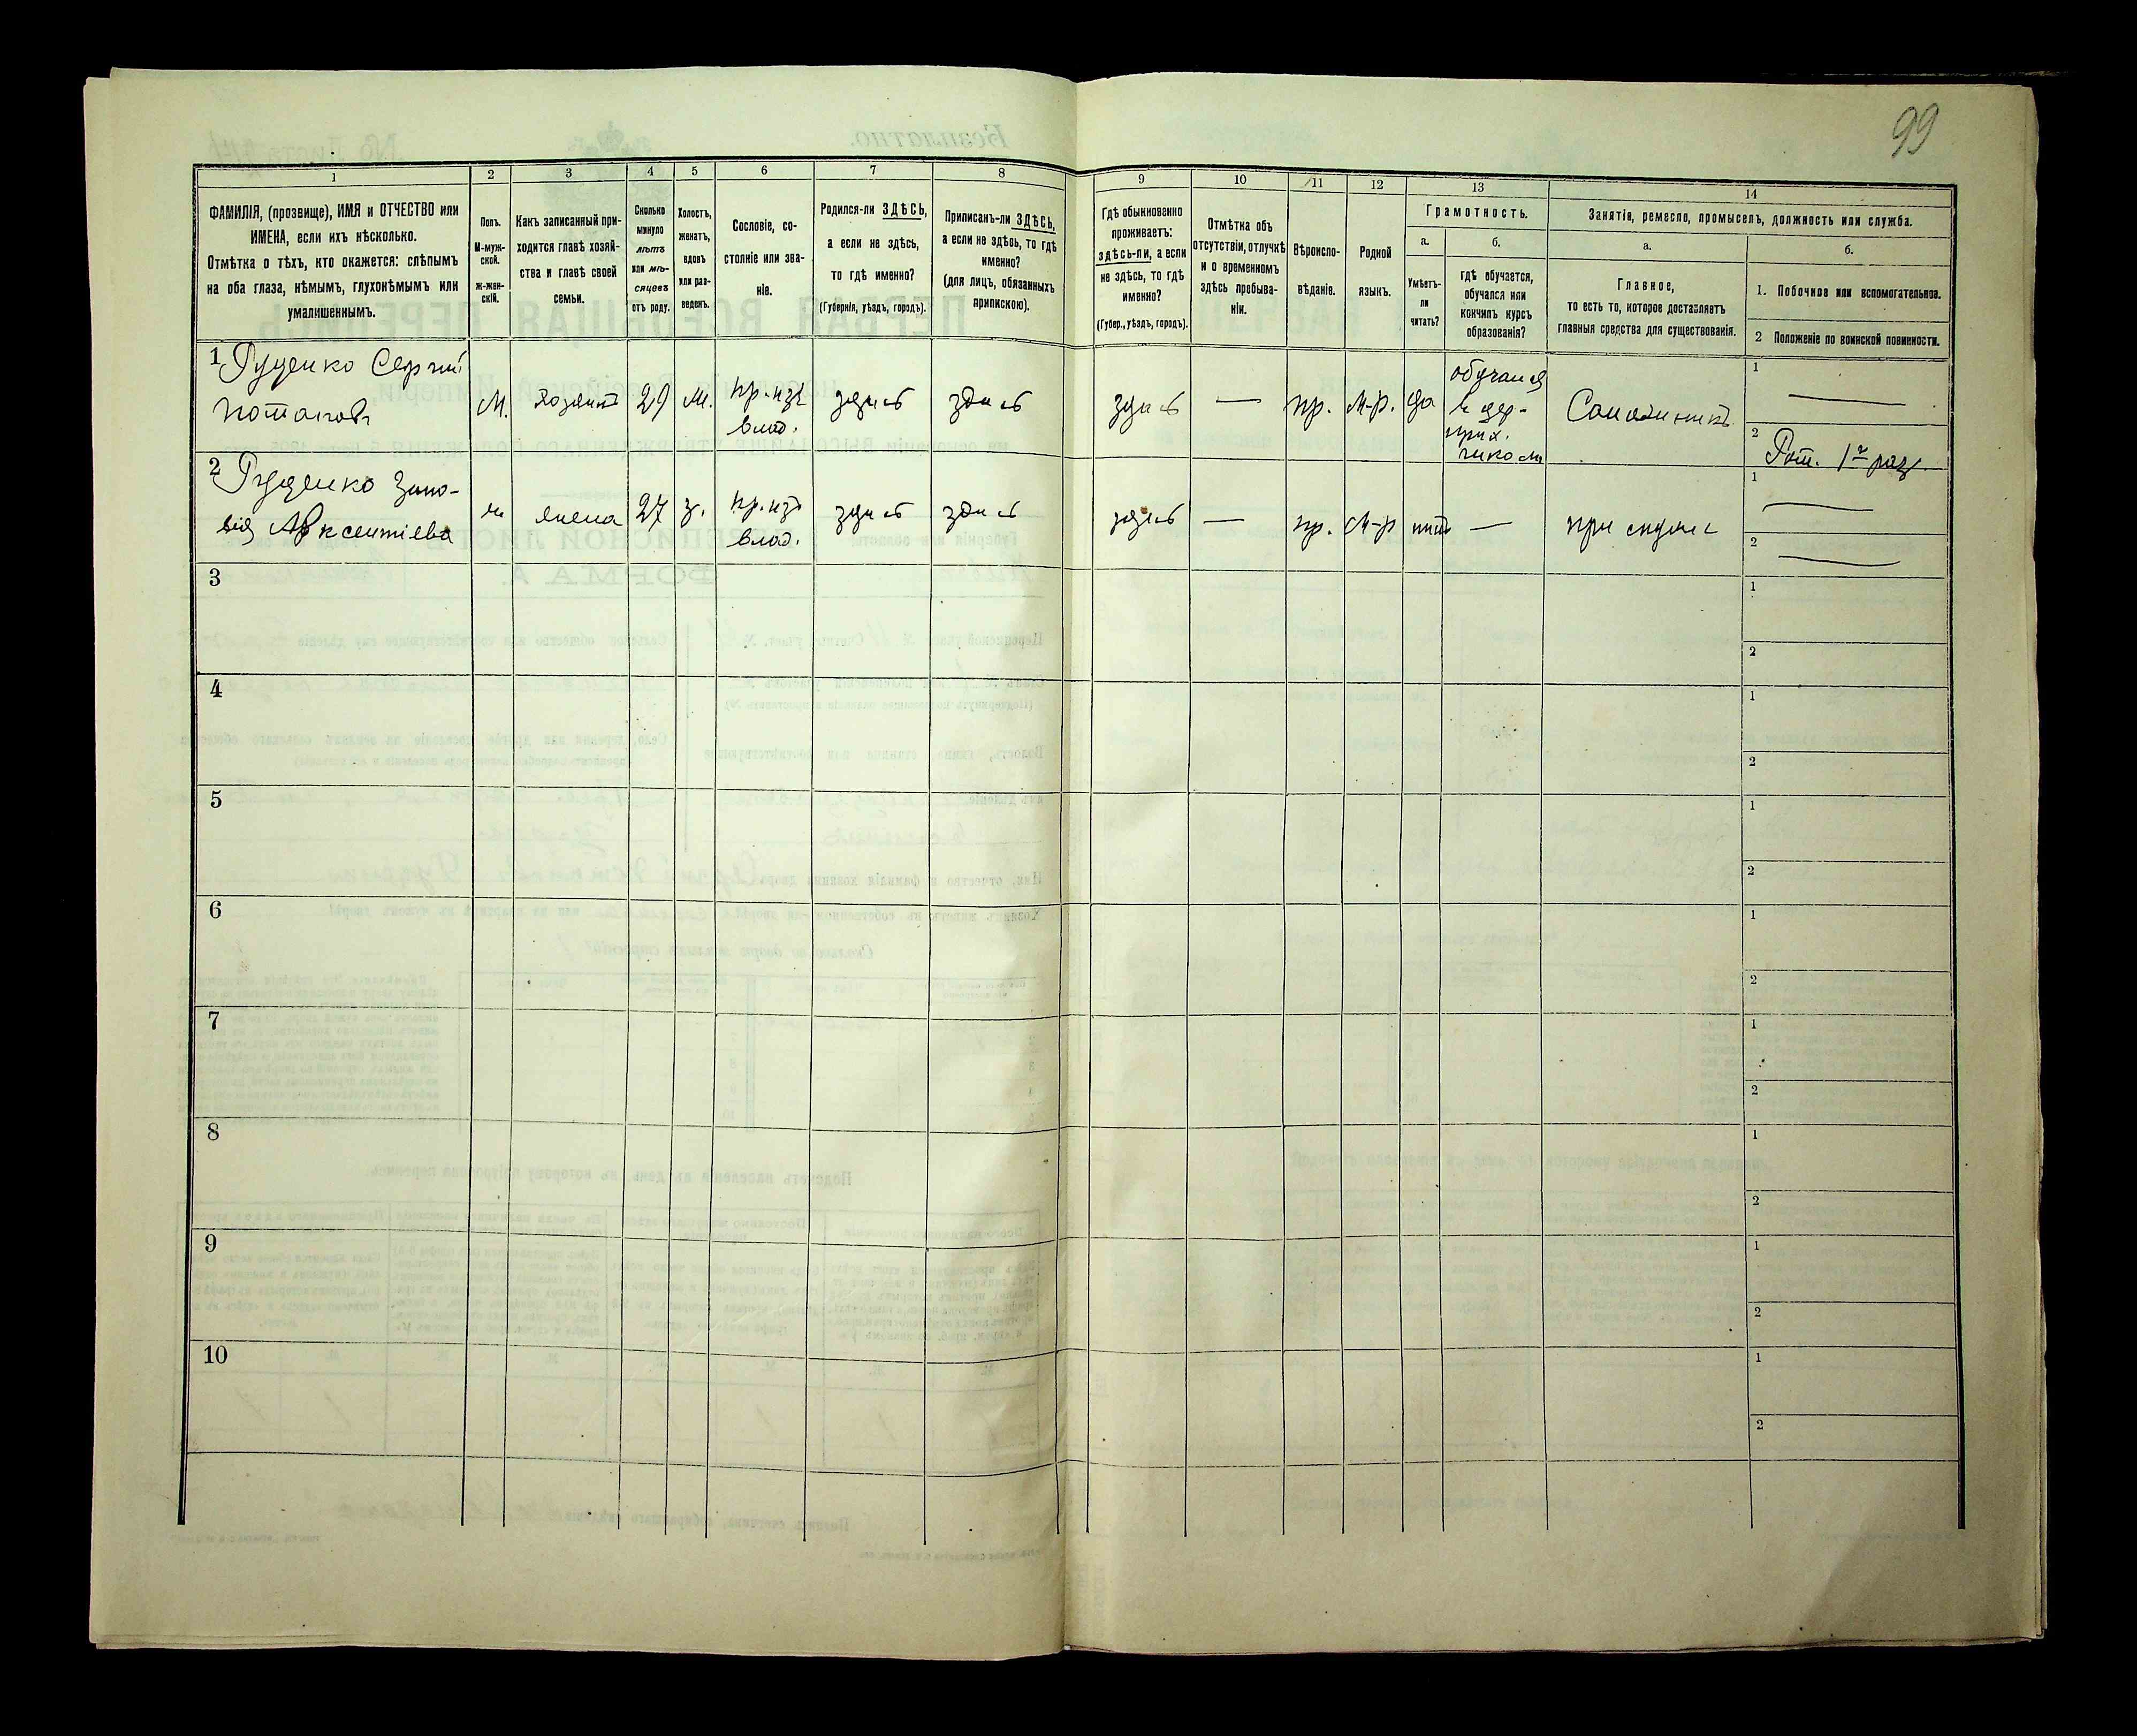 99
1 2 3 4 5 6 7 8 9 10 11 12 13 14
ФАМИЛІЯ, (прозвище), ИМЯ и ОТЧЕСТВО или
ИМЕНА, если ихъ нѣсколько.
Отмѣтка о тѣхъ, кто окажется: слѣпымъ
на оба глаза, нѣмымъ, глухонѣмымъ или
умалишеннымъ.
Полъ.
М-муж-
ской.
Ж-жен-
скій.
Какъ записанный при-
ходится главѣ хозяй-
ства и главѣ своей
семьи.
Сколько
минуло
лѣтъ
или мѣ-
сяцевъ
отъ роду.
Холостъ,
женатъ,
вдовъ
или раз-
веденъ.
Сословіе, со-
стояніе или зва-
ніе.
Родился-ли ЗДѢСЬ,
а если не здѣсь,
то гдѣ именно?
(Губернія, уѣздъ, городъ).
Приписанъ-ли ЗДѢСЬ,
а если не здѣсь, то гдѣ
именно?
(для лицъ, обязанныхъ
припискою).
Гдѣ обыкновенно
проживаетъ:
здѣсь-ли, а если
не здѣсь, то гдѣ
именно?
(Губер., уѣздъ, городъ).
Отмѣтка объ
отсутствіи, отлучкѣ
и о временномъ
здѣсь пребыва-
ніи.
Вѣроиспо-
вѣданіе.
Родной
языкъ.
Грамотность.
а.
Умѣетъ-
ли
читать?
б.
гдѣ обучается,
обучался или
кончилъ курсъ
образованія?
Занятія, ремесло, промыселъ, должность или служба.
а.
Главное,
то есть то, которое доставляетъ
главныя средства для существованія.
б.
1. Побочное или вспомогательное.
2 Положеніе по воинской повинности.
1 Руденко Сергѣй
Потаповъ
М. хозяинъ 29 ж. кр. изъ
влад.
здѣсь здѣсь здѣсь — пр. м-р. да
обучался
въ цер-
прих.
школѣ
1 —
2 Рат. 1 раз.
2 Руденко Зино-
вія Авксентіева
ж жена 27 з. кр. изъ
влад.
здѣсь здѣсь здѣсь — пр. м-р нѣтъ — при мужѣ
1 —
2 —
3
1
2
4
1
2
5
1
2
6
1
2
7
1
2
8
1
2
9
1
2
10
1
2